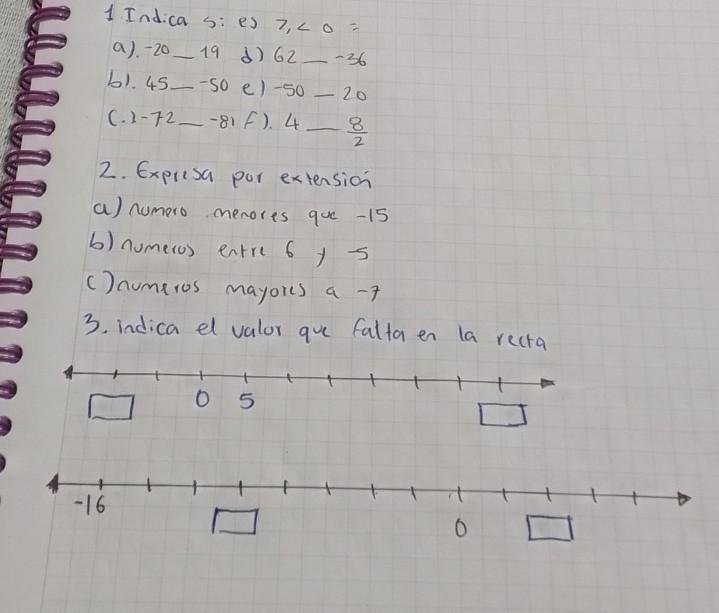 1 Indica si es >, < o =
a). -20 __ 19 d) 62 __ -36
b). 45 __ -50 e) -50 __ 20
c.) -72 __ -81 f). 4 __ 8/2
2. Expresa por extensión
a) numero menores que -15
b) numeros entre 6 y -5
c) numeros mayores a -7
3. indica el valor que falta en la recta
0 5
-16 0